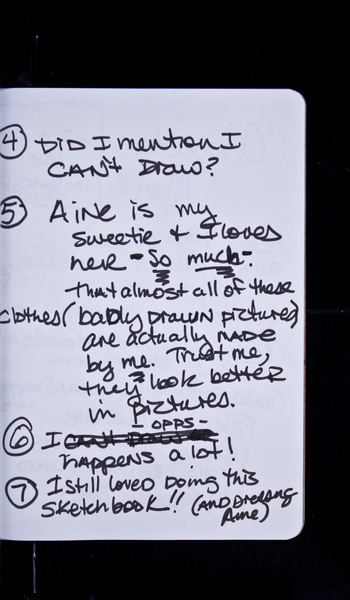 ④ DiD I mention I
CAN't Draw?
⑤ Aine is my
sweetie & I loves
her - So much -
that almost all of these
clothes (badly drawn pictures)
are actually MADE
by me. Trust me,
they look better
in pictures.
- OPPS -
⑥ I can't draw
happens a lot!
⑦ I still loved doing this
sketchbook!! (AND Dressing
Aine)